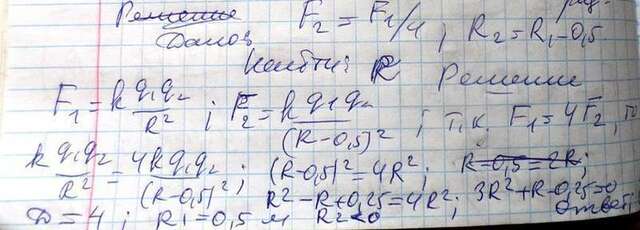 Решение
Дано: F₂ = F₁/4 ; R₂ = R₁ - 0,5.
Найти: R Решение
F₁ = k q₁q₂/R² ; F₂ = k q₁q₂/(R-0,5)² ; т.к. F₁ = 4F₂, то
k q₁q₂/R² = 4k q₁q₂/(R-0,5)² ; (R-0,5)² = 4R² ; R-0,5 = 2R ;
R² - R + 0,25 = 4R² ; 3R² + R - 0,25 = 0
D = 4 ; R₁ = 0,5 м R₂ < 0 Ответ: